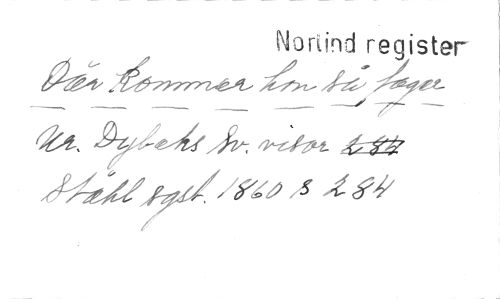 Norlind register
Där kommer hon så fager
Ur. Dybeks Sv. visor 284
Ståhl sgsb. 1860 s 284